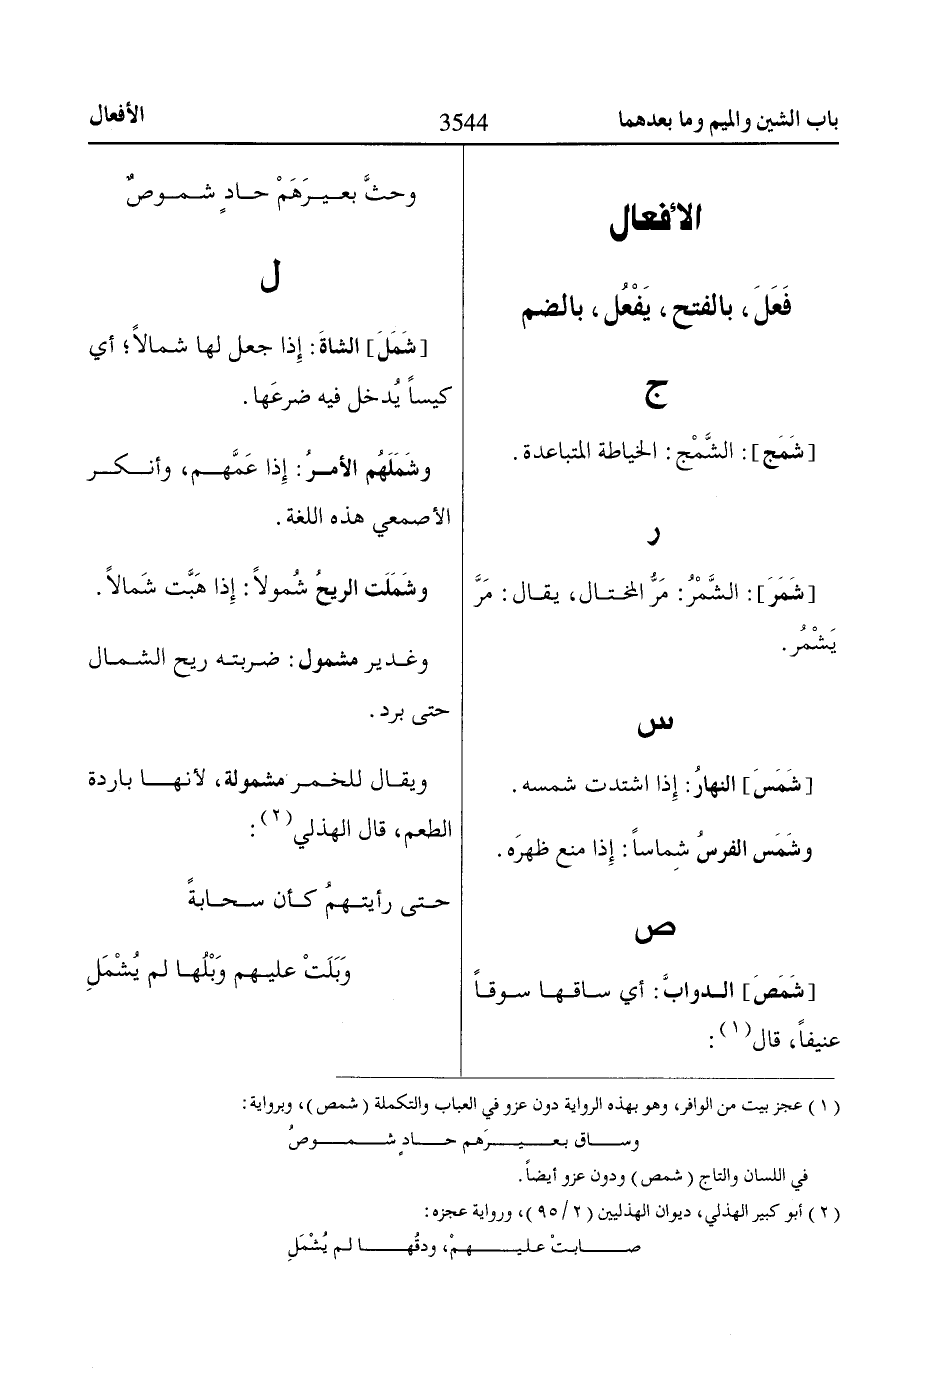 باب الشين والميم وما بعدهما
3544
الأفعال
الأفعال
فَعَلَ، بالفتح، يَفْعُل، بالضم
ج
[شَمَج]: الشَّمْج: الخياطة المتباعدة.
ر
[شَمَرَ]: الشَّمْرُ: مَرُّ المختال، يقال: مَرَّ
يَشْمُر.
س
[شَمَسَ] النهارُ: إذا اشتدت شمسه.
وشَمَس الفرسُ شماساً: إذا منع ظهرَه.
ص
[شَمَصَ] الدوابَّ: أي ساقها سوقاً
عنيفاً، قال(١):
وحثَّ بعيرَهَمْ حادٍ شموصٌ
ل
[شَمَلَ] الشاةَ: إذا جعل لها شمالاً؛ أي
كيساً يُدخل فيه ضرعَها.
وشَمَلَهُم الأمرُ: إذا عَمَّهم، وأنكر
الأصمعي هذه اللغة.
وشَمَلَت الريحُ شُمولاً: إذا هَبَّت شَمالاً.
وغدير مشمول: ضربته ريح الشمال
حتى برد.
ويقال للخمر مشمولة، لأنها باردة
الطعم، قال الهذلي(٢):
حتى رأيتهمُ كأن سحابةً
وَبَلَتْ عليهم وَبْلُها لم يُشْمَلِ
(١) عجز بيت من الوافر، وهو بهذه الرواية دون عزو في العباب والتكملة (شمص)، وبرواية:
وساق بعيرَهم حادٍ شموصُ
في اللسان والتاج (شمص) ودون عزو أيضاً.
(٢) أبو كبير الهذلي، ديوان الهذليين (٩٥/٢)، ورواية عجزه:
صابتْ عليهمْ، ودقُها لم يُشْمَلِ